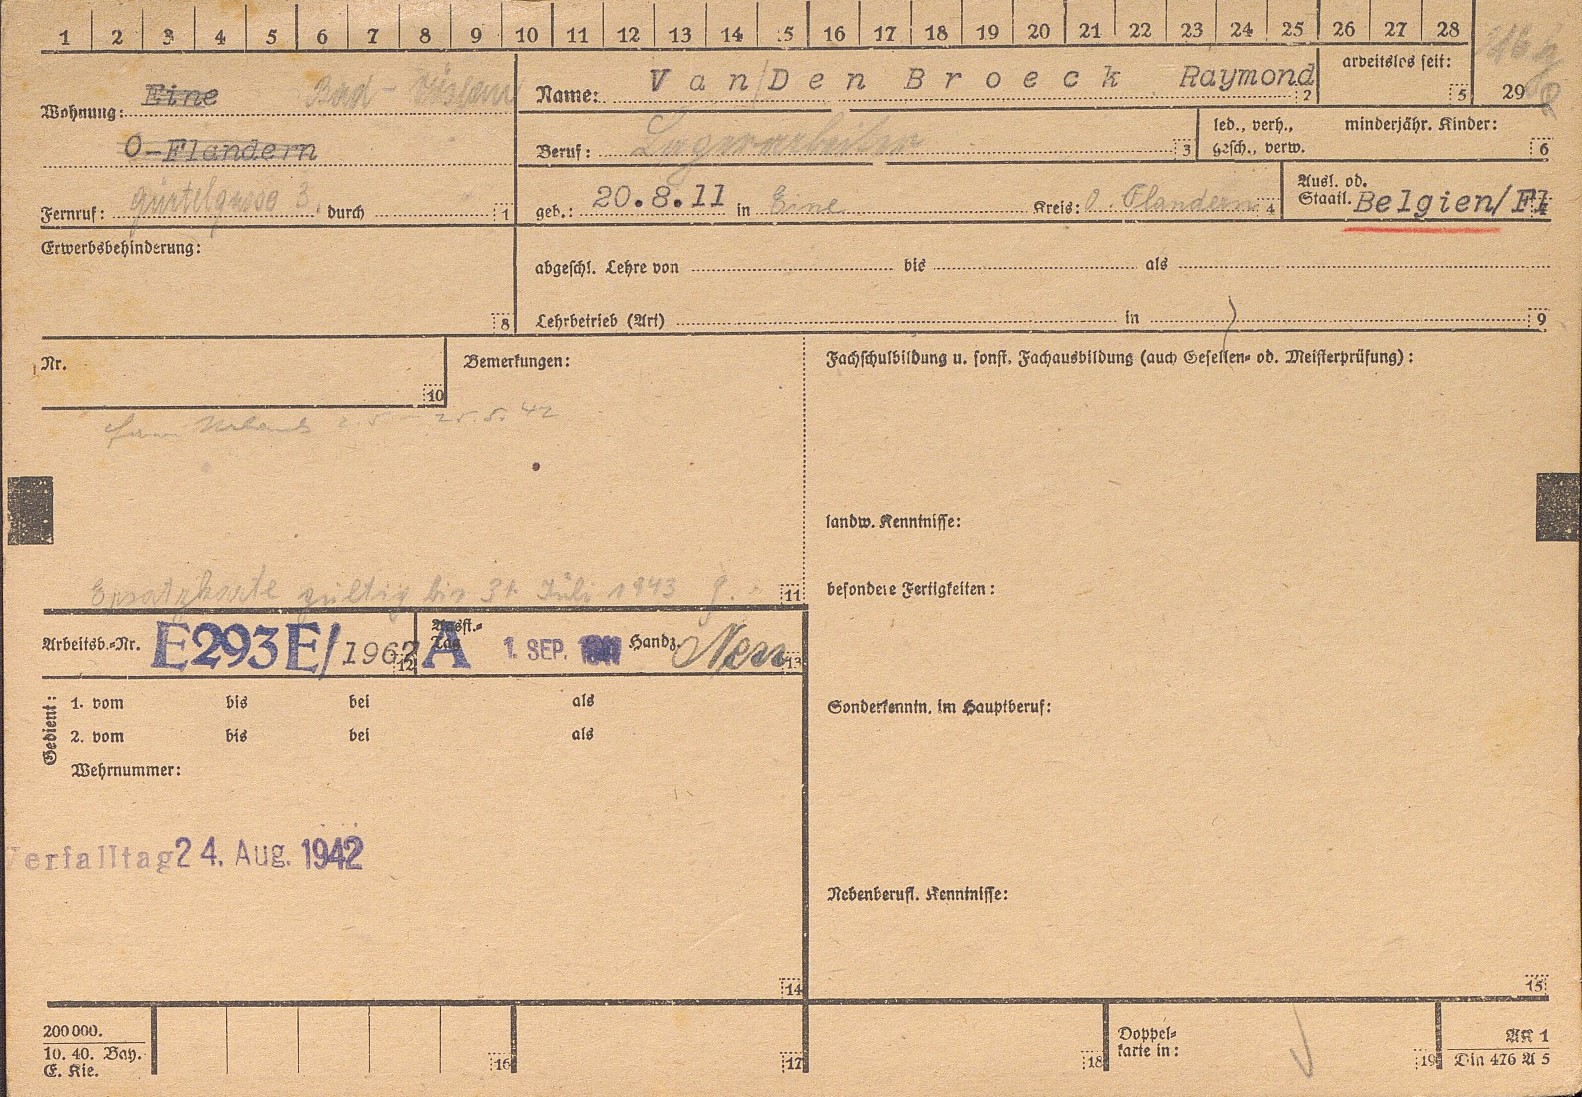 1 2 3 4 5 6 7 8 9 10 11 12 13 14 15 16 17 18 19 20 21 22 23 24 25 26 27 28
Wohnung: Eine Bad - Vöslau
O-Flandern
Fernruf: Gürtelgasse 3. durch 1
Name: Van/Den Broeck Raymond 2
arbeitslos seit: 5 29
Beruf: Lagerarbeiter 3
led., verh., minderjähr. Kinder:
gesch., verw. 6
geb.: 20.8.11 in Eine Kreis: O. Flandern 4
Ausl. od.
Staatl. Belgien/Fl
Erwerbsbehinderung:
8
abgeschl. Lehre von bis als
Lehrbetrieb (Art) in 9
Nr.
10
Bemerkungen:
Urlaub 2.5 - 25.5.42
Ersatzkarte gültig bis 31. Juli 1943
11
Fachschulbildung u. sonst. Fachausbildung (auch Gesellen- od. Meisterprüfung):
landw. Kenntnisse:
besondere Fertigkeiten:
Arbeitsb.-Nr. E293E/1962 12
Ausst.-
Tag A 1. SEP. 1941 Handz. 13
Gedient:
1. vom bis bei als
2. vom bis bei als
Wehrnummer:
Verfalltag 24. Aug. 1942
14
Sonderkenntn. im Hauptberuf:
Nebenberufl. Kenntnisse:
15
200 000.
10. 40. Bay.
E. Kie.
16 17 18
Doppel-
karte in:
19
AK 1
Din 476 A 5